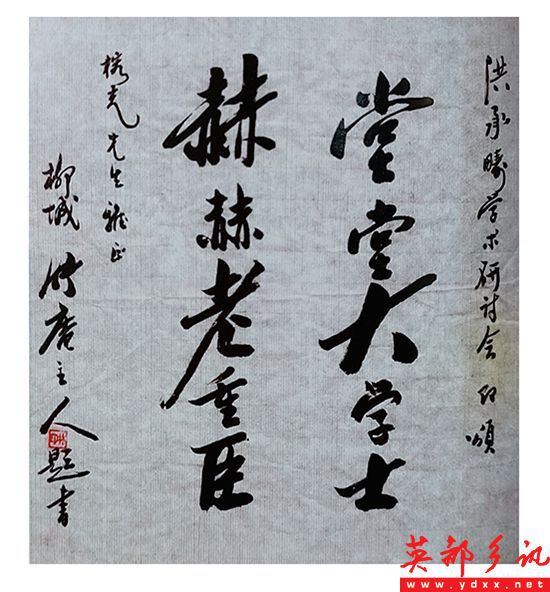 洪承畴学术研讨会 印颂
堂堂大学士
赫赫老重臣
先生雅正
柳城竹庵主人题书
英都乡讯
www.ydxx.net